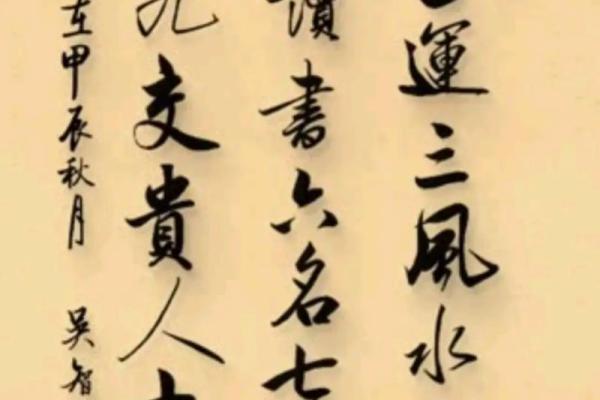 運三風水
讀書六名七
九交貴人
在甲辰秋月 吳智